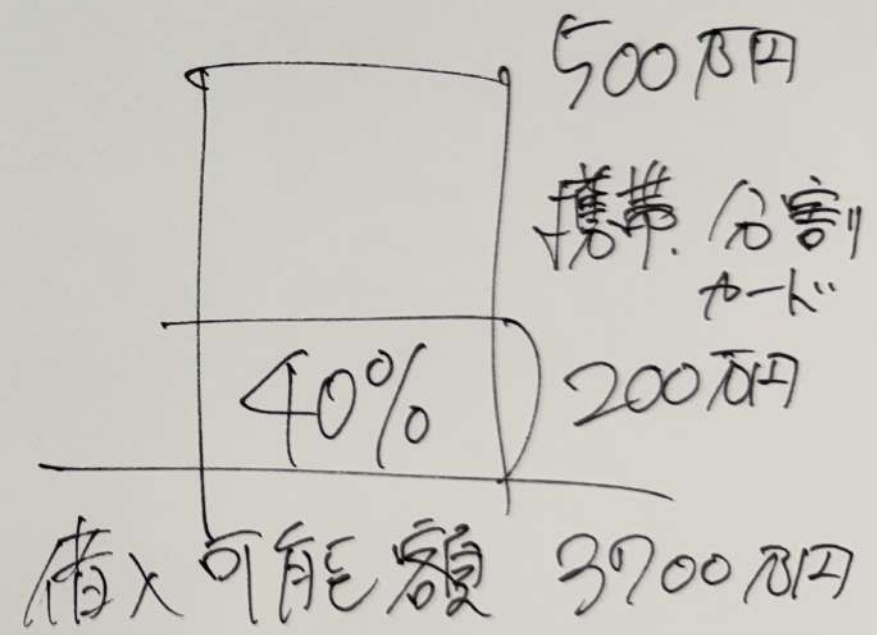 500万円
携帯、分割
カード
40%
200万円
借入可能額 3700万円